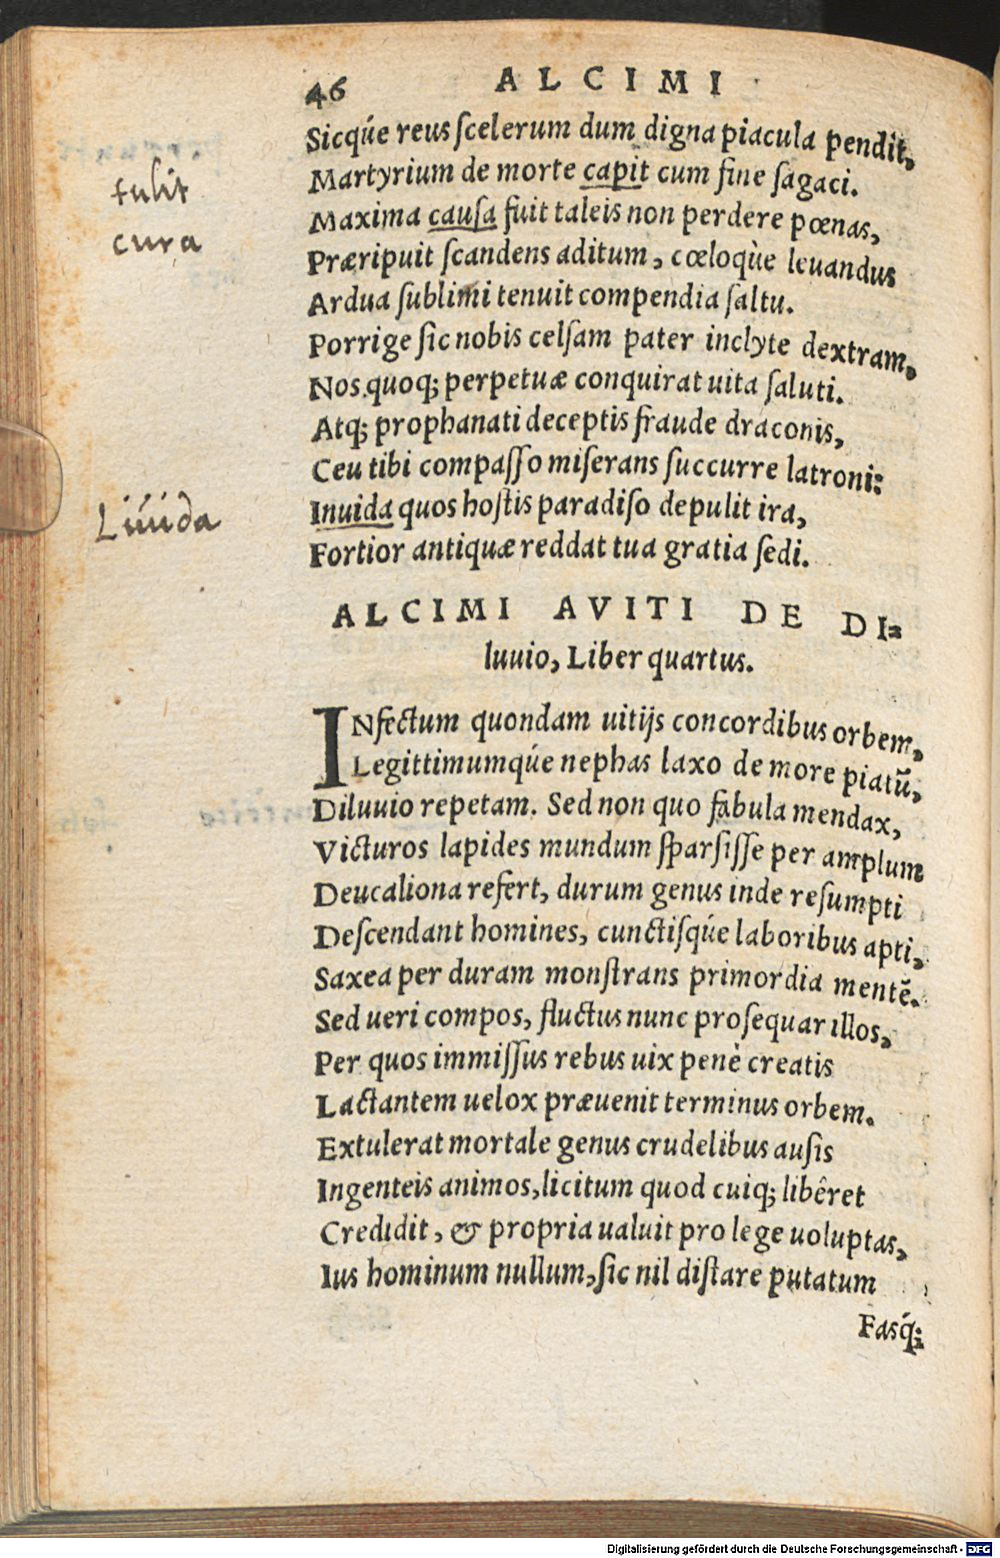 46 ALCIMI
Sicq́ue reus ſcelerum dum digna piacula pendit,
Martyrium de morte capit cum fine ſagaci.
tulit
Maxima cauſa fuit taleis non perdere pœnas,
cura
Præripuit ſcandens aditum, cœloq̀ue leuandus
Ardua ſublimi tenuit compendia ſaltu.
Porrige ſic nobis celſam pater inclyte dextram,
Nos quoq; perpetuæ conquirat uita ſaluti.
Atq; prophanati deceptis fraude draconis,
Ceu tibi compaſſo miſerans ſuccurre latroni:
Inuida quos hoſtis paradiſo depulit ira,
Liuida
Fortior antiquæ reddat tua gratia ſedi.
ALCIMI AVITI DE DI=
luuio, Liber quartus.
INfectum quondam uitijs concordibus orbem,
Legittimumq́ue nephas laxo de more piatū,
Diluuio repetam. Sed non quo fabula mendax,
Victuros lapides mundum ſparſiſſe per amplum
Deucaliona refert, durum genus inde reſumpti
Deſcendant homines, cunctiſq́ue laboribus apti,
Saxea per duram monſtrans primordia mentē.
Sed ueri compos, fluctus nunc proſequar illos,
Per quos immiſſus rebus uix penè creatis
Lactantem uelox præuenit terminus orbem.
Extulerat mortale genus crudelibus auſis
Ingenteis animos, licitum quod cuiq; libêret
Credidit, & propria ualuit pro lege uoluptas,
Ius hominum nullum, ſic nil diſtare putatum
Faſq́;
Digitalisierung gefördert durch die Deutsche Forschungsgemeinschaft - DFG